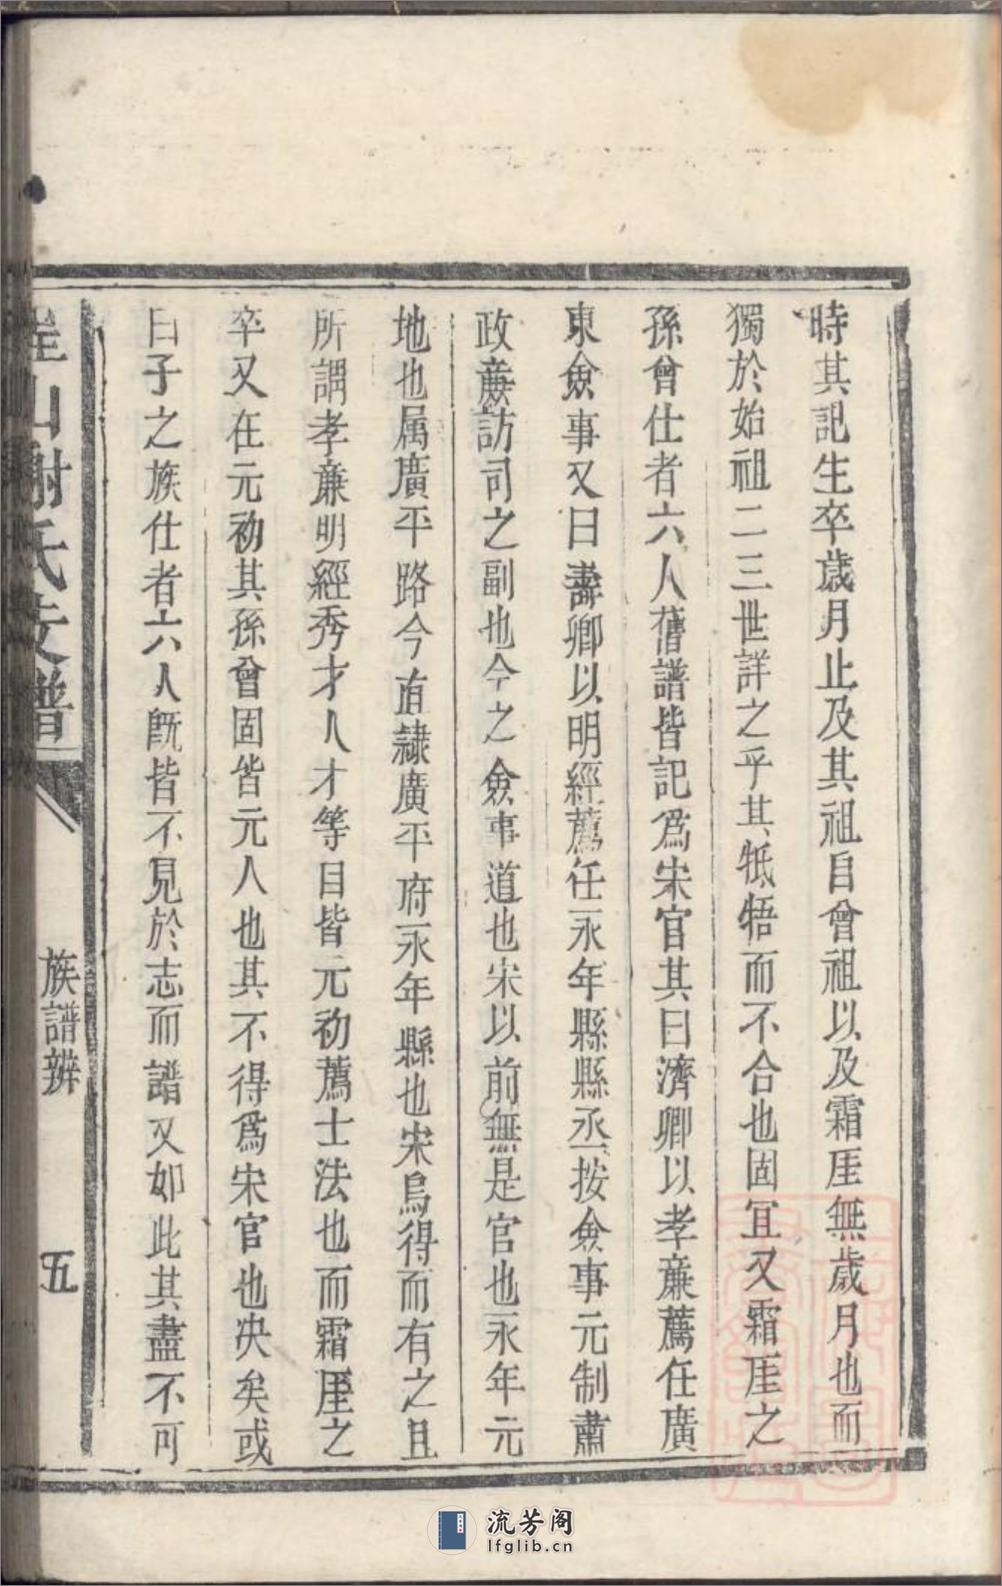 時其記生卒歲月止及其祖自曾祖以及霜厓無歲月也而
獨於始祖二三世詳之乎其牴牾而不合也固宜又霜厓之
孫曾仕者六人舊譜皆記爲宋官其曰濟卿以孝亷薦任廣
東僉事又曰壽卿以明經薦任永年縣縣丞按僉事元制肅
政亷訪司之副也今之僉事道也宋以前無是官也永年元
地也属廣平路今直隷廣平府永年縣也宋烏得而有之且
所謂孝亷明經秀才人才等目皆元初薦士法也而霜厓之
卒又在元初其孫曾固皆元人也其不得爲宋官也决矣或
曰子之族仕者六人旣皆不見於志而譜又如此其盡不可
山謝氏支譜
族譜辨
五
流芳阁
lfglib.cn